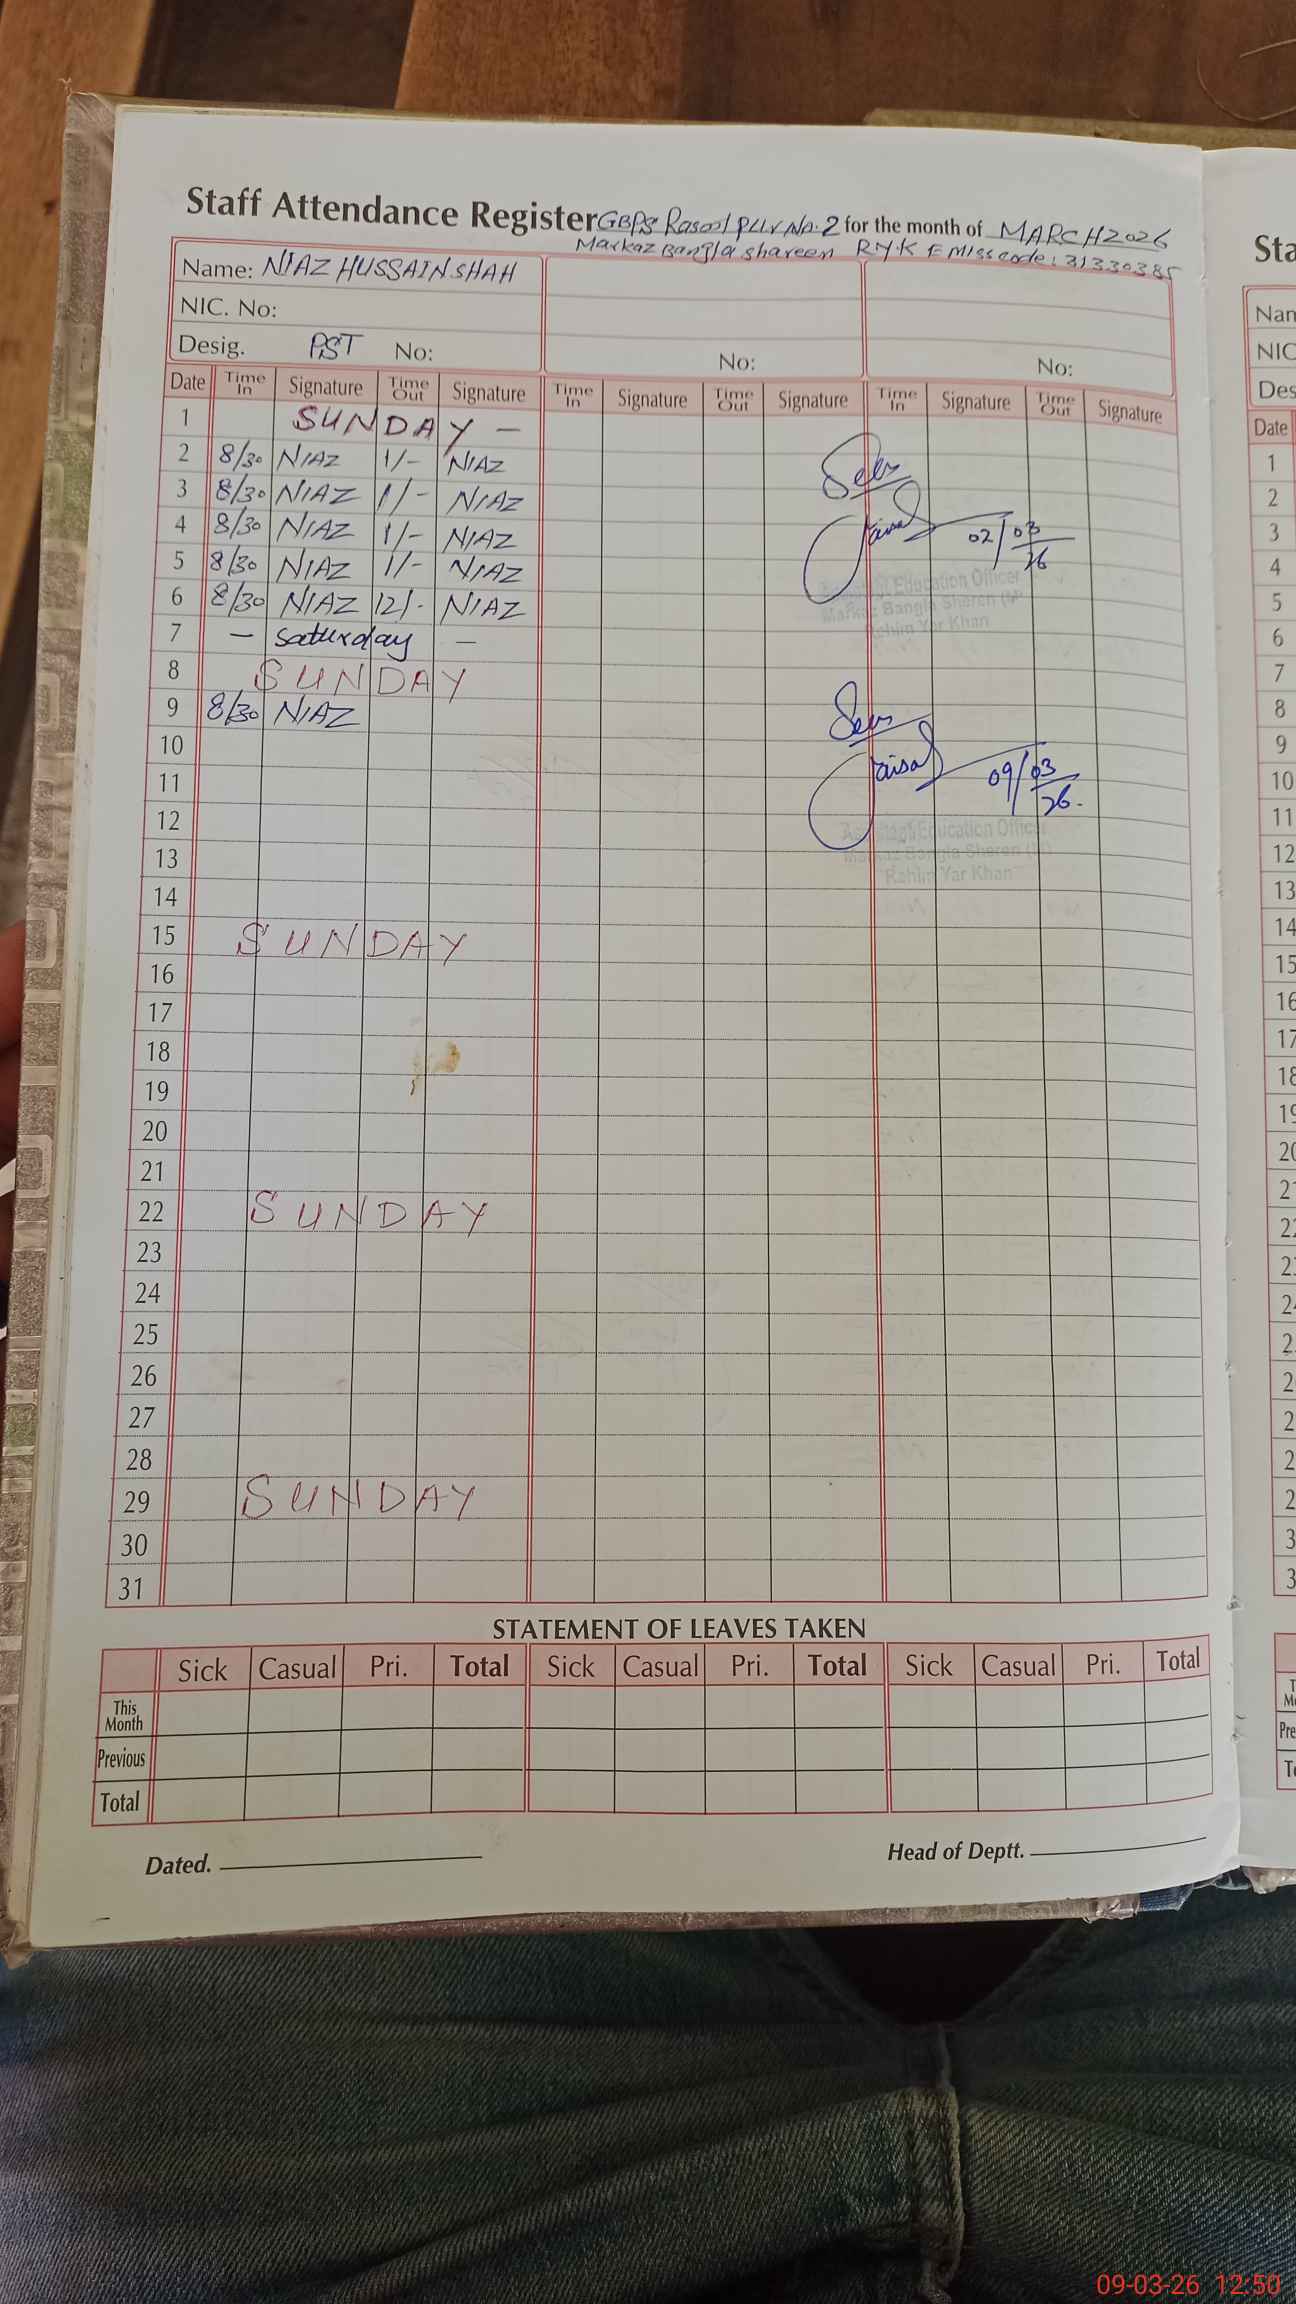 Staff Attendance Register GBPS Rasool Pur No. 2 for the month of MARCH 2026
Markaz Bangla shareen RYK EMISS code: 31330385
Name: NIAZ HUSSAIN SHAH
NIC. No:
Desig. PST No: No: No:
Date Time In Signature Time Out Signature Time In Signature Time Out Signature Time In Signature Time Out Signature
1 SUNDAY -
2 8/30 NIAZ 1/- NIAZ
3 8/30 NIAZ 1/- NIAZ
4 8/30 NIAZ 1/- NIAZ
5 8/30 NIAZ 1/- NIAZ
6 8/30 NIAZ 12/- NIAZ
7 - Saturday -
8 SUNDAY
9 8/30 NIAZ
10
11
12
13
14
15 SUNDAY
16
17
18
19
20
21
22 SUNDAY
23
24
25
26
27
28
29 SUNDAY
30
31
Seen
Faisal 02/03/26
Education Officer
Markaz Bangla Sheren (M)
Rahim Yar Khan
Seen
Faisal 09/03/26.
Education Officer
Markaz Bangla Sheren (M)
Rahim Yar Khan
STATEMENT OF LEAVES TAKEN
Sick Casual Pri. Total Sick Casual Pri. Total Sick Casual Pri. Total
This Month
Previous
Total
Dated. Head of Deptt.
Sta
Nan
NIC
Des
Date
1
2
3
4
5
6
7
8
9
10
11
12
13
14
15
16
17
18
19
20
09-03-26 12:50